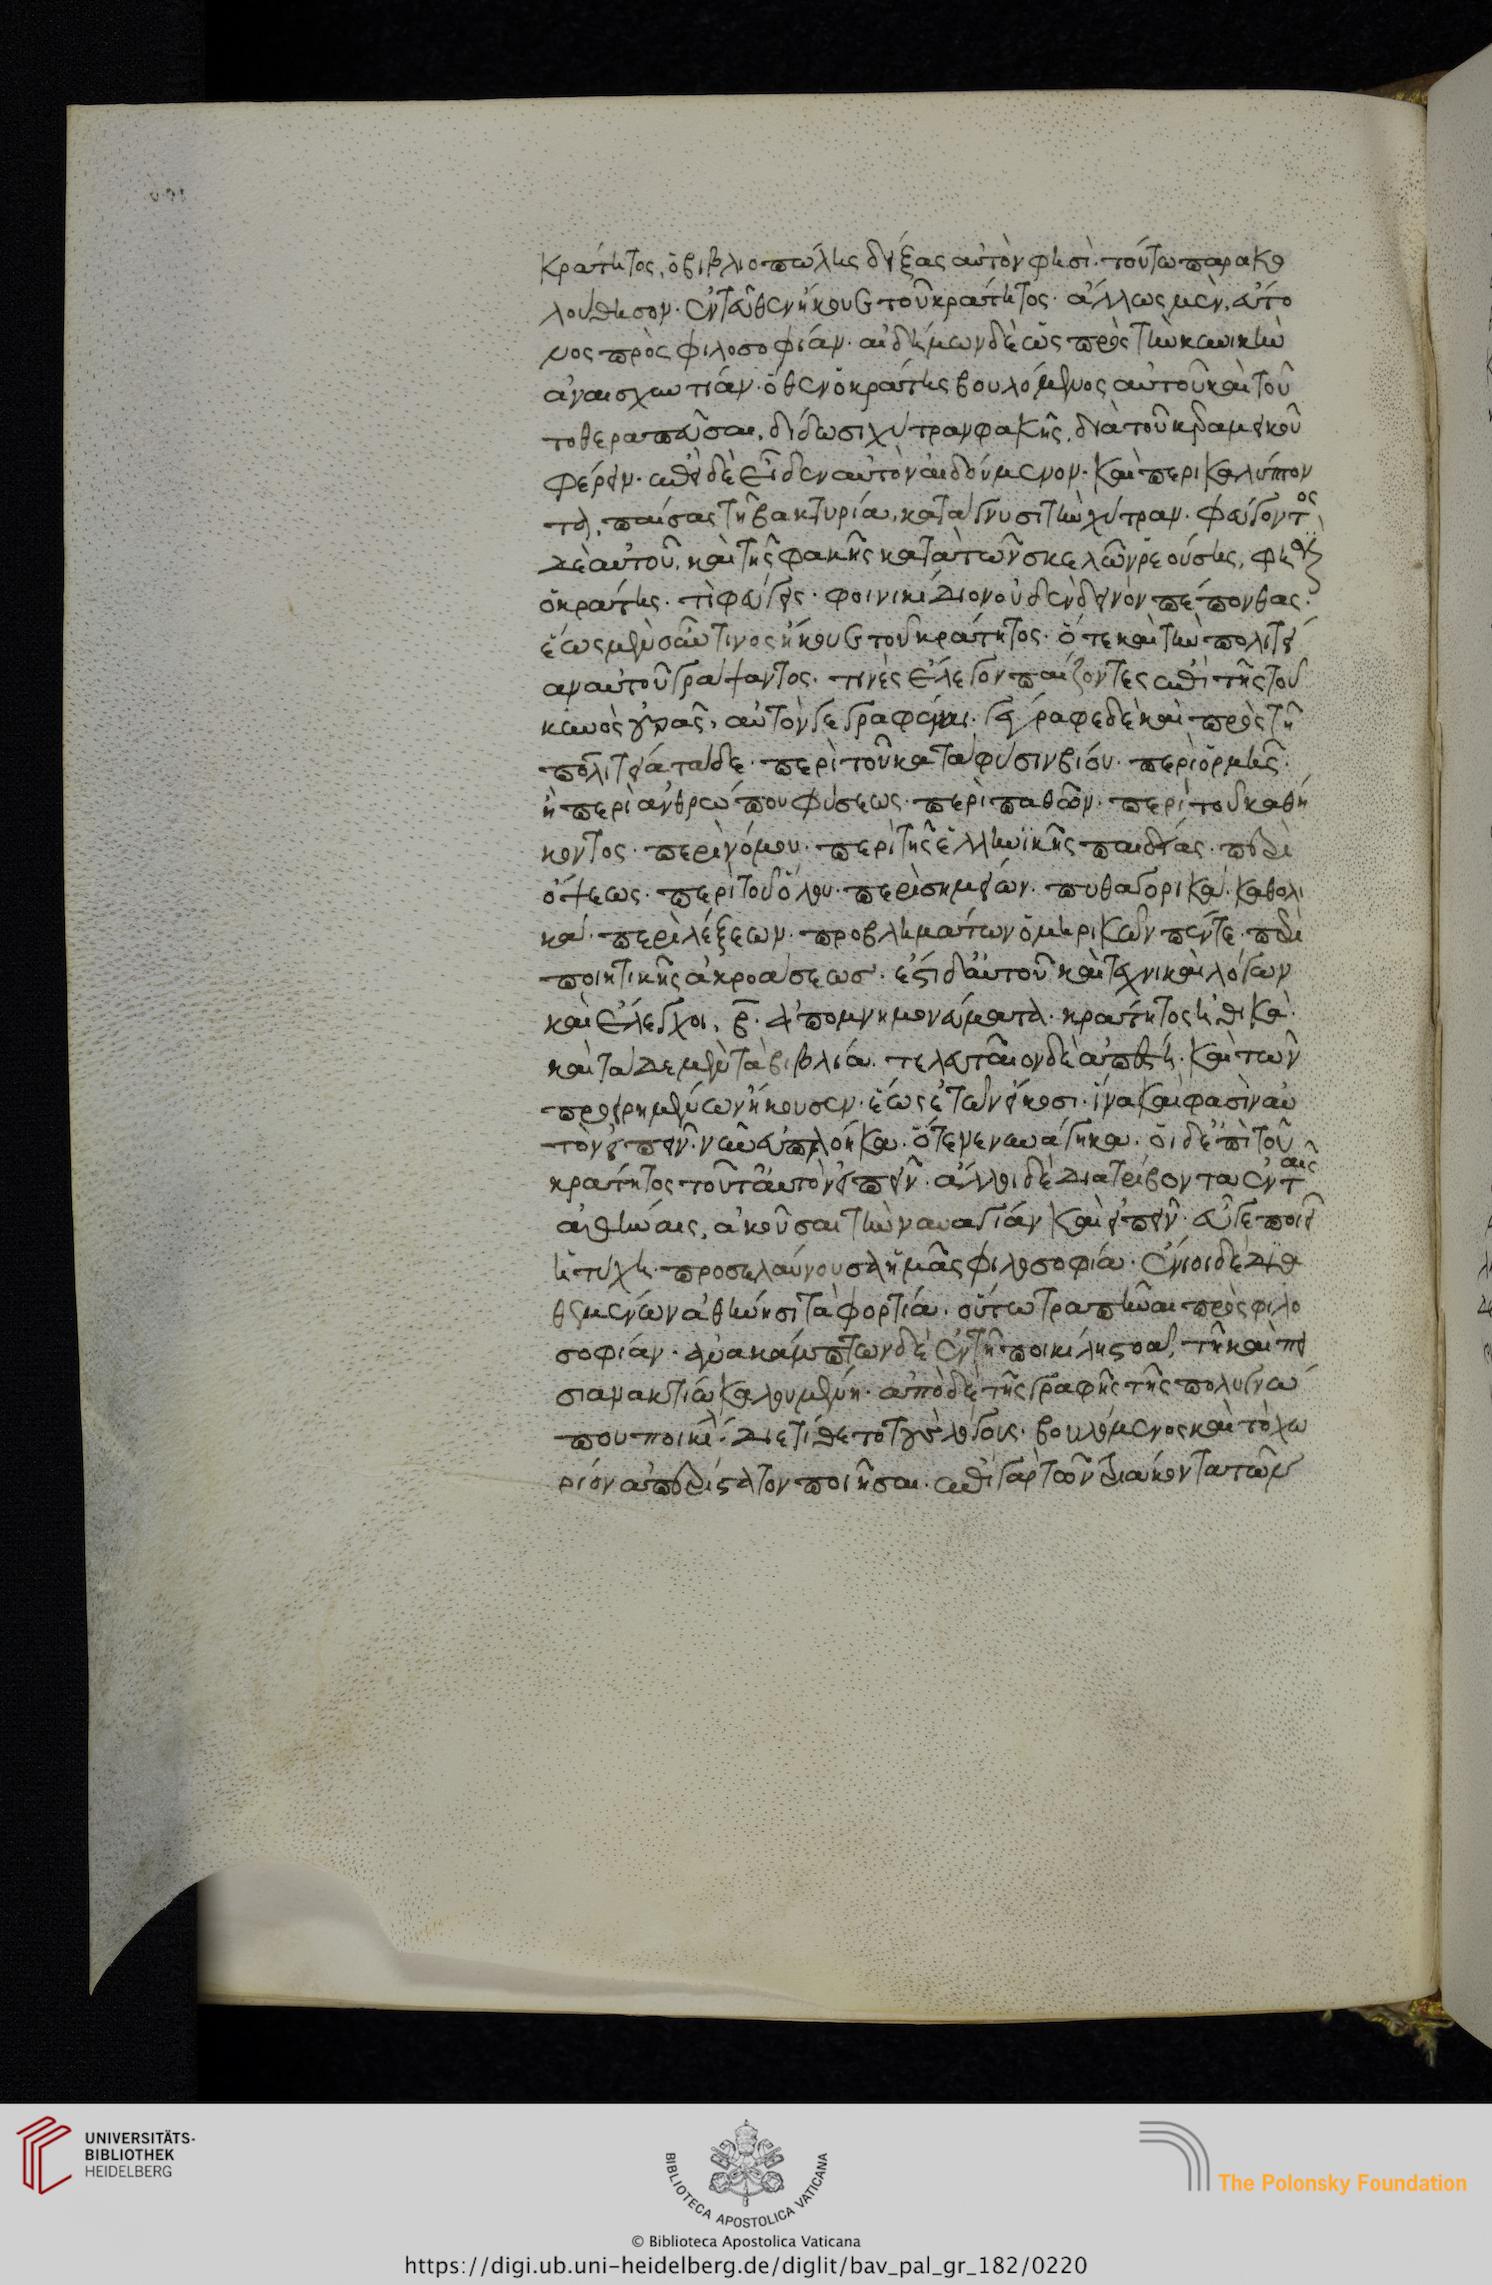 κράτητος, ὁ βιβλιοπώλης δείξας αὐτὸν φησί· τούτω παρακο
λούθησον· ἐντεῦθεν ἤκουσε τοῦ κράτητος· ἄλλως μὲν, εὔτο
νος πρὸς φιλοσοφίαν· αἰδήμων δὲ ὡς πρὸς τὴν κυνικὴν
ἀναισχυντίαν· ὅθεν ὁ κράτης βουλόμενος αὐτοῦ καὶ τοῦ
το θεραπεῦσαι, δίδωσι χύτραν φακῆς, διὰ τοῦ κεραμεικοῦ
φέρειν· ἐπεὶ δὲ εἶδεν αὐτὸν αἰδούμενον· καὶ περικαλύπτον
τα, παίσας τῇ βακτηρία, κατάγνυσι τὴν χύτραν· φεύγοντος
δὲ αὐτοῦ, καὶ τῆς φακῆς κατὰ τῶν σκελῶν ῥεούσης, φησὶ
ὁ κράτης· τί φεύγεις· φοινικίδιον οὐδὲν δεινὸν πέπονθας·
ἕως μὲν οὖν τινος ἤκουσε τοῦ κράτητος· ὅτε καὶ τὴν πολιτεί
αν αὐτοῦ γράψαντος· τινὲς ἔλεγον παίζοντες ἐπὶ τῆς τοῦ
κυνὸς οὐρᾶς, αὐτὸν γεγραφέναι· γέγραφε δὲ καὶ πρὸς τῇ
πολιτεία τάδε· περὶ τοῦ κατὰ φύσιν βίου· περὶ ὁρμῆς
ἢ περὶ ἀνθρώπου φύσεως· περὶ παθῶν· περὶ τοῦ καθή
κοντος· περὶ νόμου· περὶ τῆς ἑλληνικῆς παιδείας· περὶ
ὄψεως· περὶ τοῦ ὅλου· περὶ σημείων· πυθαγορικὰ· καθολι
κὰ· περὶ λέξεων· προβλημάτων ὁμηρικῶν πέντε· περὶ
ποιητικῆς ἀκροάσεως· ἔστι δ' αὐτοῦ καὶ τέχνη καὶ λύσεις
καὶ ἔλεγχοι, β· ἀπομνημονεύματα κράτητος ἠθικὰ·
καὶ τάδε μὲν τὰ βιβλία· τελευταῖον δὲ ἀπέστη· καὶ τῶν
προειρημένων ἤκουσεν· ἕως ἐτῶν εἴκοσι· ἵνα καὶ φασὶν αὐ
τὸν εἰπεῖν· νῦν εὐπλόηκα· ὅτε νεναυάγηκα· οἱ δ' ἐπὶ τοῦ
κράτητος τοῦτ' αὐτὸν εἰπεῖν· ἄλλοι δὲ διατρίβοντα ἐν ταῖς
ἀθήναις, ἀκοῦσαι τὴν ναυαγίαν καὶ εἰπεῖν· εὖ γε ποιεῖ
ἡ τύχη· προσελαύνουσα ἡμᾶς φιλοσοφία· ἔνιοι δὲ διαθ
θεμένων ἀθήνησι τὰ φορτία· οὕτω τραπῆναι πρὸς φιλο
σοφίαν· ἀνακάμπτων δὲ ἐν τῇ ποικίλη στοᾶ, τῇ καὶ πει
σιανακτίω καλουμένη· ἀπὸ δὲ τῆς γραφῆς τῆς πολυγνώ
που ποικίλη· διετίθετο τοὺς λόγους· βουλόμενος καὶ τὸ χω
ρίον ἀπερίστατον ποιῆσαι· ἐπὶ γὰρ τῶν τριάκοντα τῶν
UNIVERSITÄTS-
BIBLIOTHEK
HEIDELBERG
BIBLIOTECA APOSTOLICA VATICANA
The Polonsky Foundation
© Biblioteca Apostolica Vaticana
https://digi.ub.uni-heidelberg.de/diglit/bav_pal_gr_182/0220